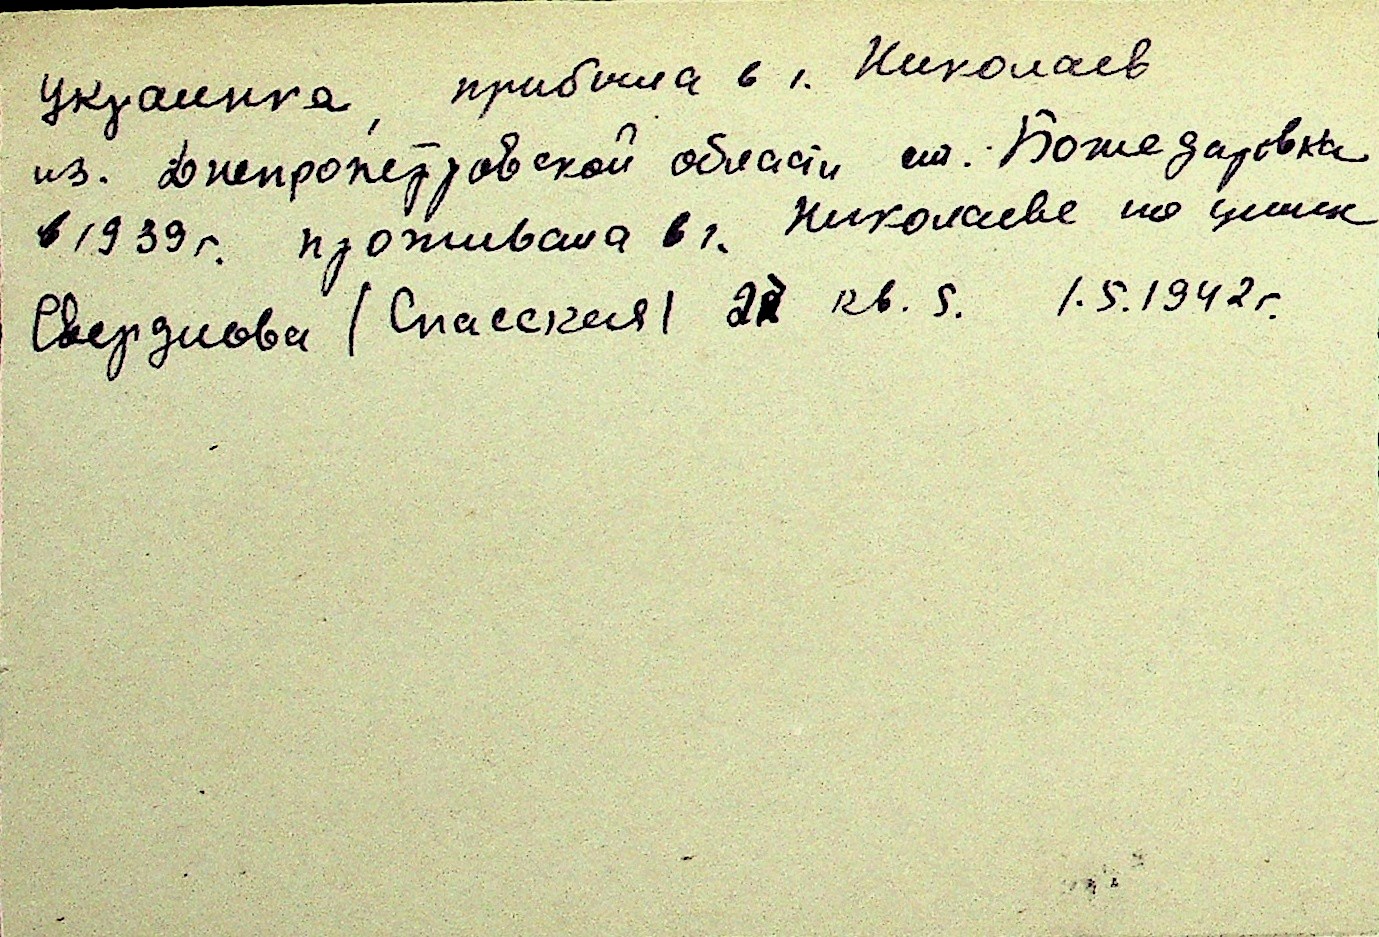 Украинка, прибыла в г. Николаев
из. Днепропетровской области ст. Божедаровка
в 1939 г. проживала в г. Николаеве по улице
Свердлова (Спасская) кв. 5. 1.5.1942 г.